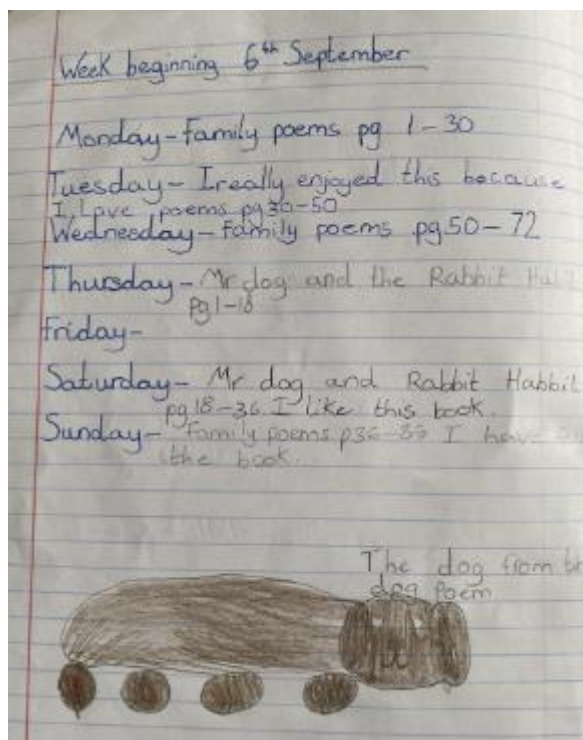 Week beginning 6th September
Monday - Family poems pg 1-30
Tuesday - I really enjoyed this because
I Love poems pg 30-50
Wednesday - Family poems pg 50-72
Thursday - Mr dog and the Rabbit
pg 1-18
Friday -
Saturday - Mr dog and Rabbit Habbit
pg 18-36 I like this book.
Sunday - Family poems I have
the book.
The dog from
dog poem